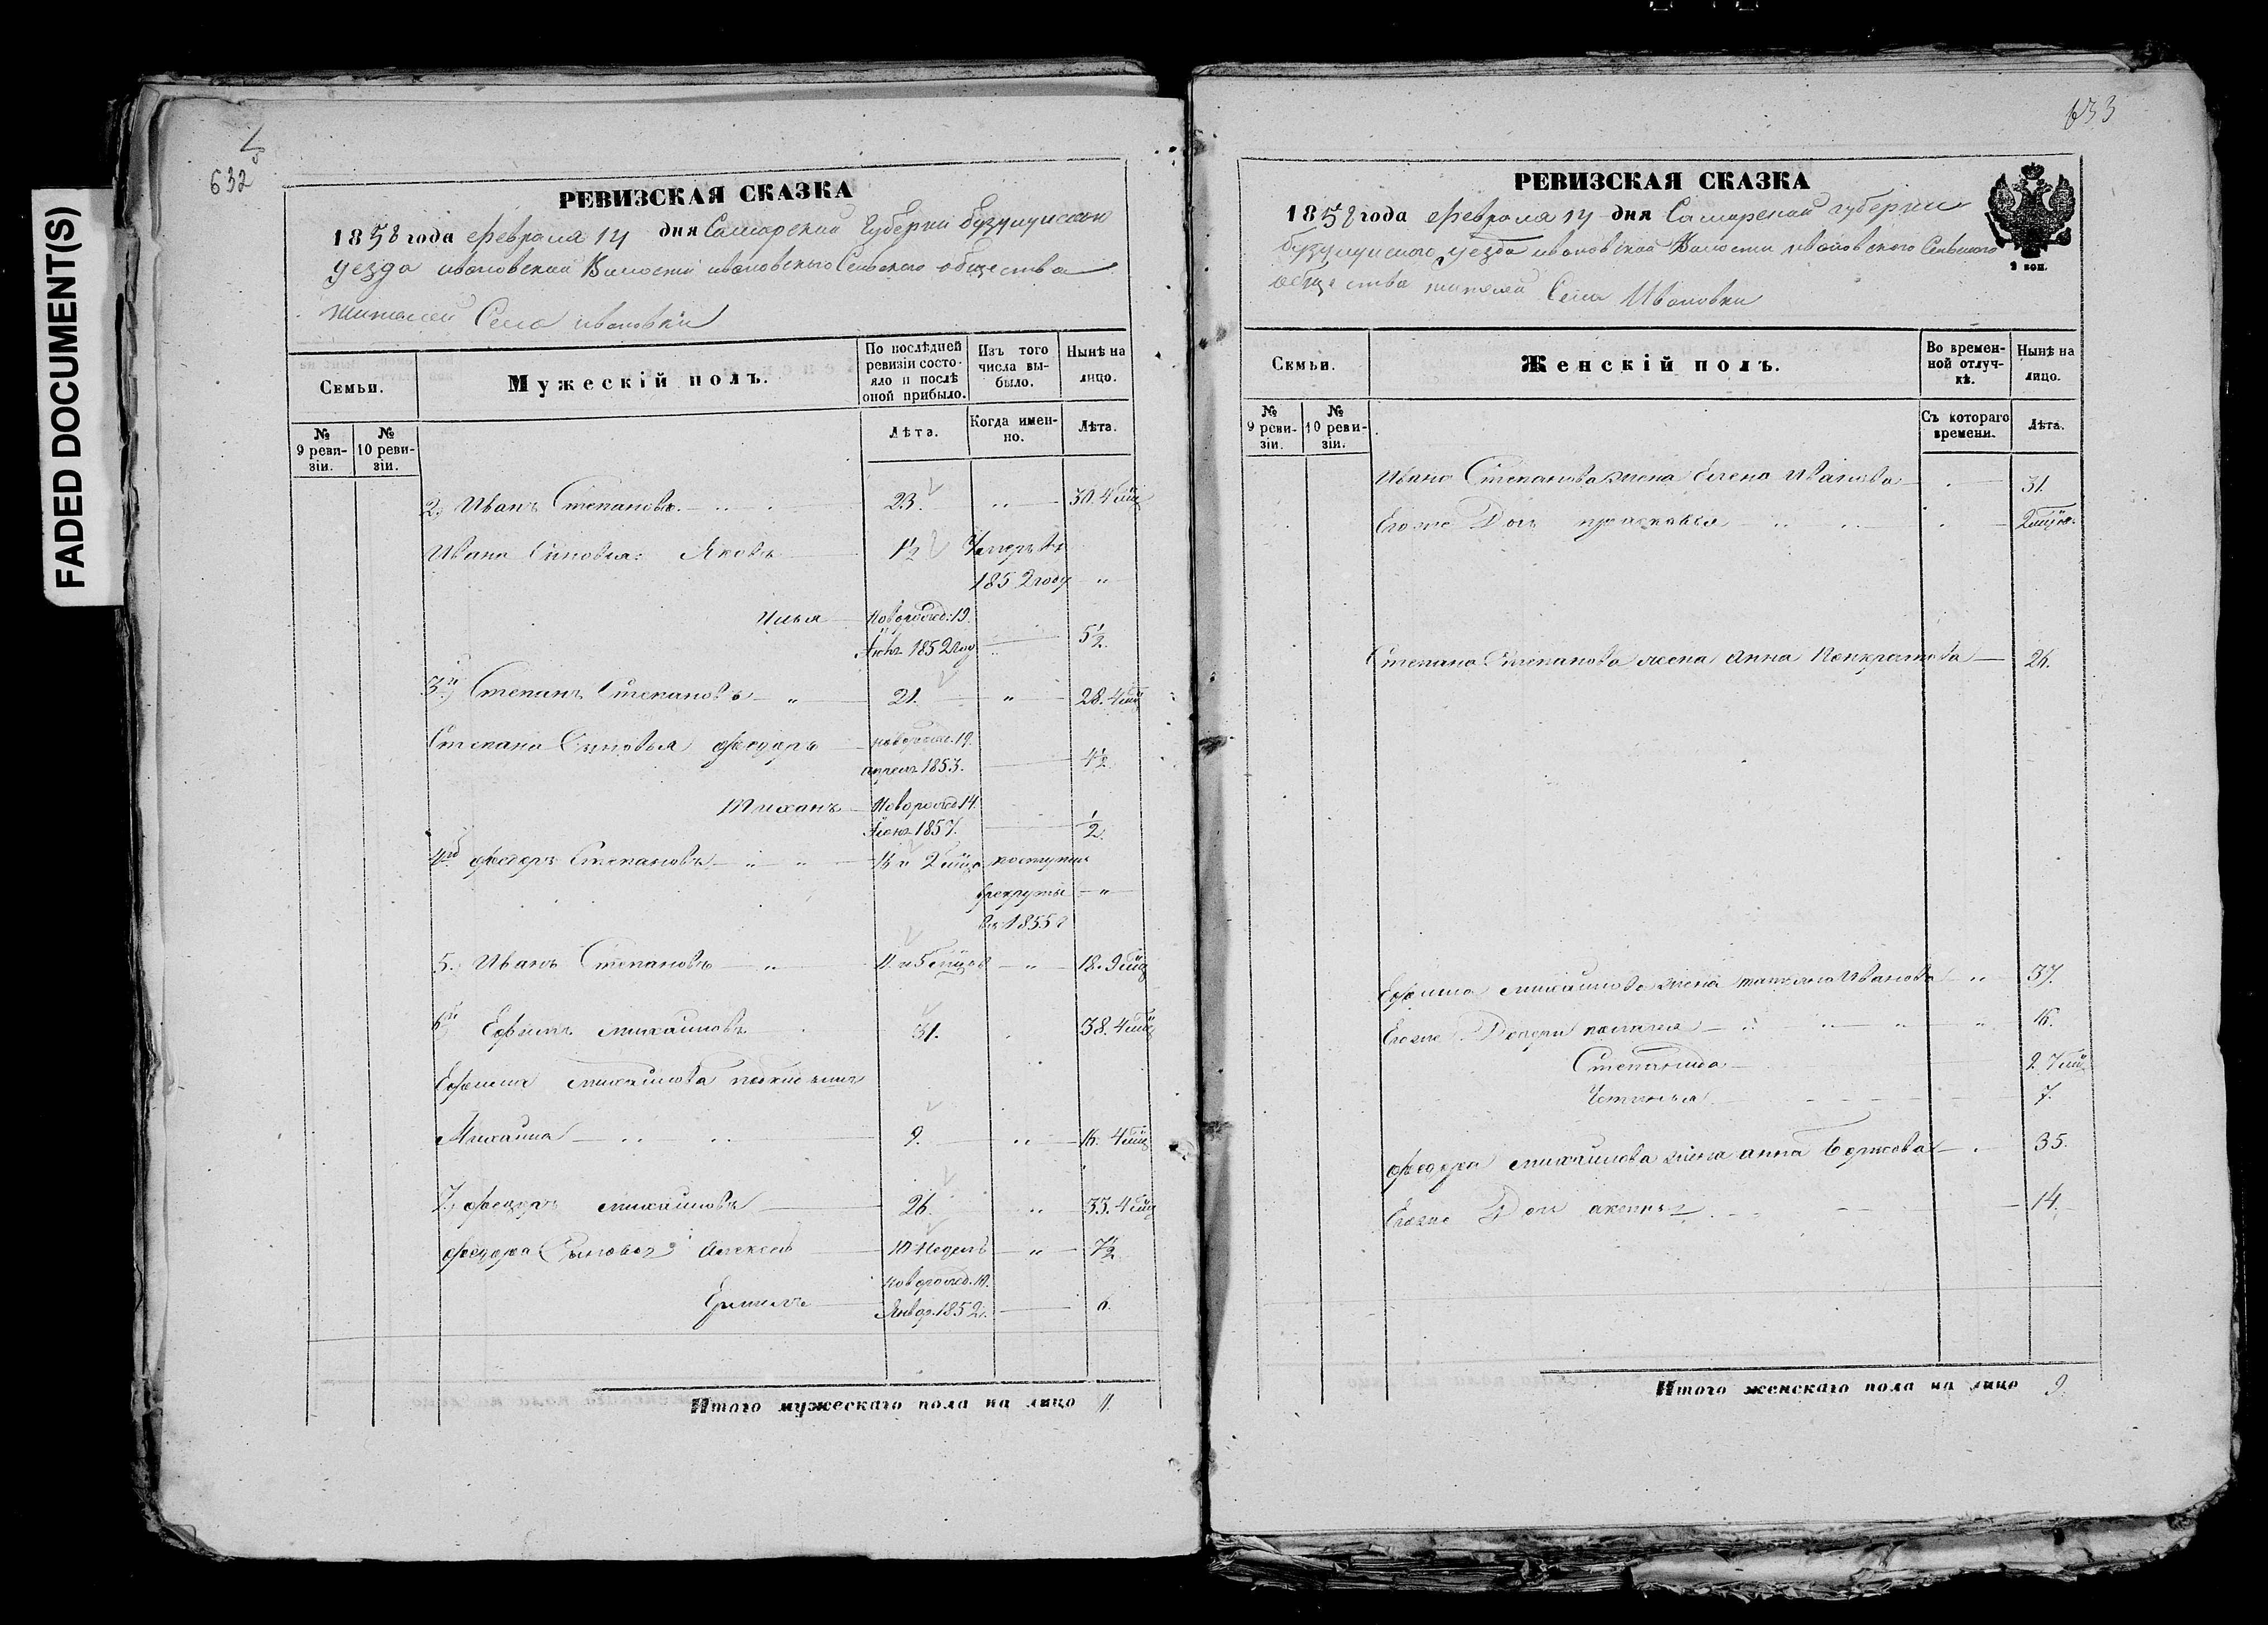 FADED DOCUMENT(S)
632
РЕВИЗСКАЯ СКАЗКА
1858 года февраля 14 дня Самарской Губернии бузулуцскаго
уезда ивановской Волости ивановскаго Сельскаго общества
жителей Села ивановки
Семьи.
Мужескій полъ.
По послѣдней ревизіи состояло и послѣ оной прибыло.
Изъ того числа выбыло.
Нынѣ на лицо.
№ 9 ревизіи.
№ 10 ревизіи.
Лѣта.
Когда именно.
Лѣта.
2, Иванъ Степановъ 23. 30. 4 мц
Ивана Сыновья: Яковъ 1½ Умеръ въ
1852 году "
Илья Новорожд: 19.
Іюня 1852 год 5½
3й Степанъ Степановъ 21. " 28. 4 мц
Степана Сыновья федоръ новорожд. 19.
апреля 1853. 4½
Новорожд 14.
Іюня 1857. ½
федоръ Степановъ 16 и 2 мца поступил
врекруты "
въ 1855 г
5. Иванъ Степановъ " 11 и 5 мцовъ " 18. 9 мц
6й Ефимъ михайловъ 31. 38. 4 мц
Ефима михайлова
Михаила 9. " 16. 4 мц
7, федоръ михайловъ 26. " 33. 4 мц
федора Сыновья Алексей 10 недель " 7½
новорожд. 10.
Ермилъ Январ. 1852. 6.
Итого мужескаго пола на лицо 11.
633
РЕВИЗСКАЯ СКАЗКА
1858 года февраля 14 дня Самарской губернии
бузулуцскаго уезда ивановской Волости ивановскаго Сельскаго
общества жителей Села Ивановки
2 коп.
Семьи.
Женскій полъ.
Во временной отлучкѣ.
Нынѣ на лицо.
№ 9 ревизіи.
№ 10 ревизіи.
Съ котораго времени.
Лѣта.
Ивана Степанова жена Елена Иванова 31.
Егоже Дочь прасковья
Степана Степанова жена Анна Понкратова 26.
Ефима михайлова жена татьяна Иванова " 37.
Егоже Дочери пелагея " 16.
Степанида
Устинья 7.
федора михайлова жена анна 35.
Егоже Дочь 14.
Итого женскаго пола на лицо 9.